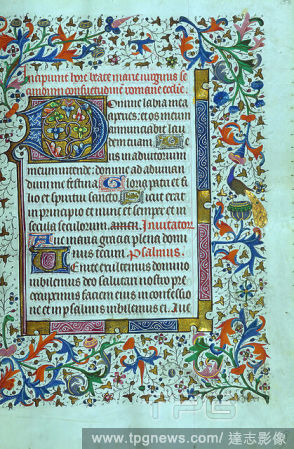 Incipiunt hore beate marie virginis se
cundum consuetudinem romane ecclie.
Domine labia mea
aperies: et os meum
annunciabit lau
dem tuam. Deus
in adiutorium
meum intende: domine ad adiuuan
dum me festina. Gloria patri et fi
lio et spiritui sancto. Sicut erat
in principio et nunc et semper et in
secula seculorum. amen. Inuitatori
Aue maria gracia plena domi
nus tecum. Psalmus.
Uenite exultemus domino
iubilemus deo salutari nostro pre
occupemus faciem eius in confessio
ne et in psalmis iubilemus ei.
TPG
www.tpgnews.com / 達志影像